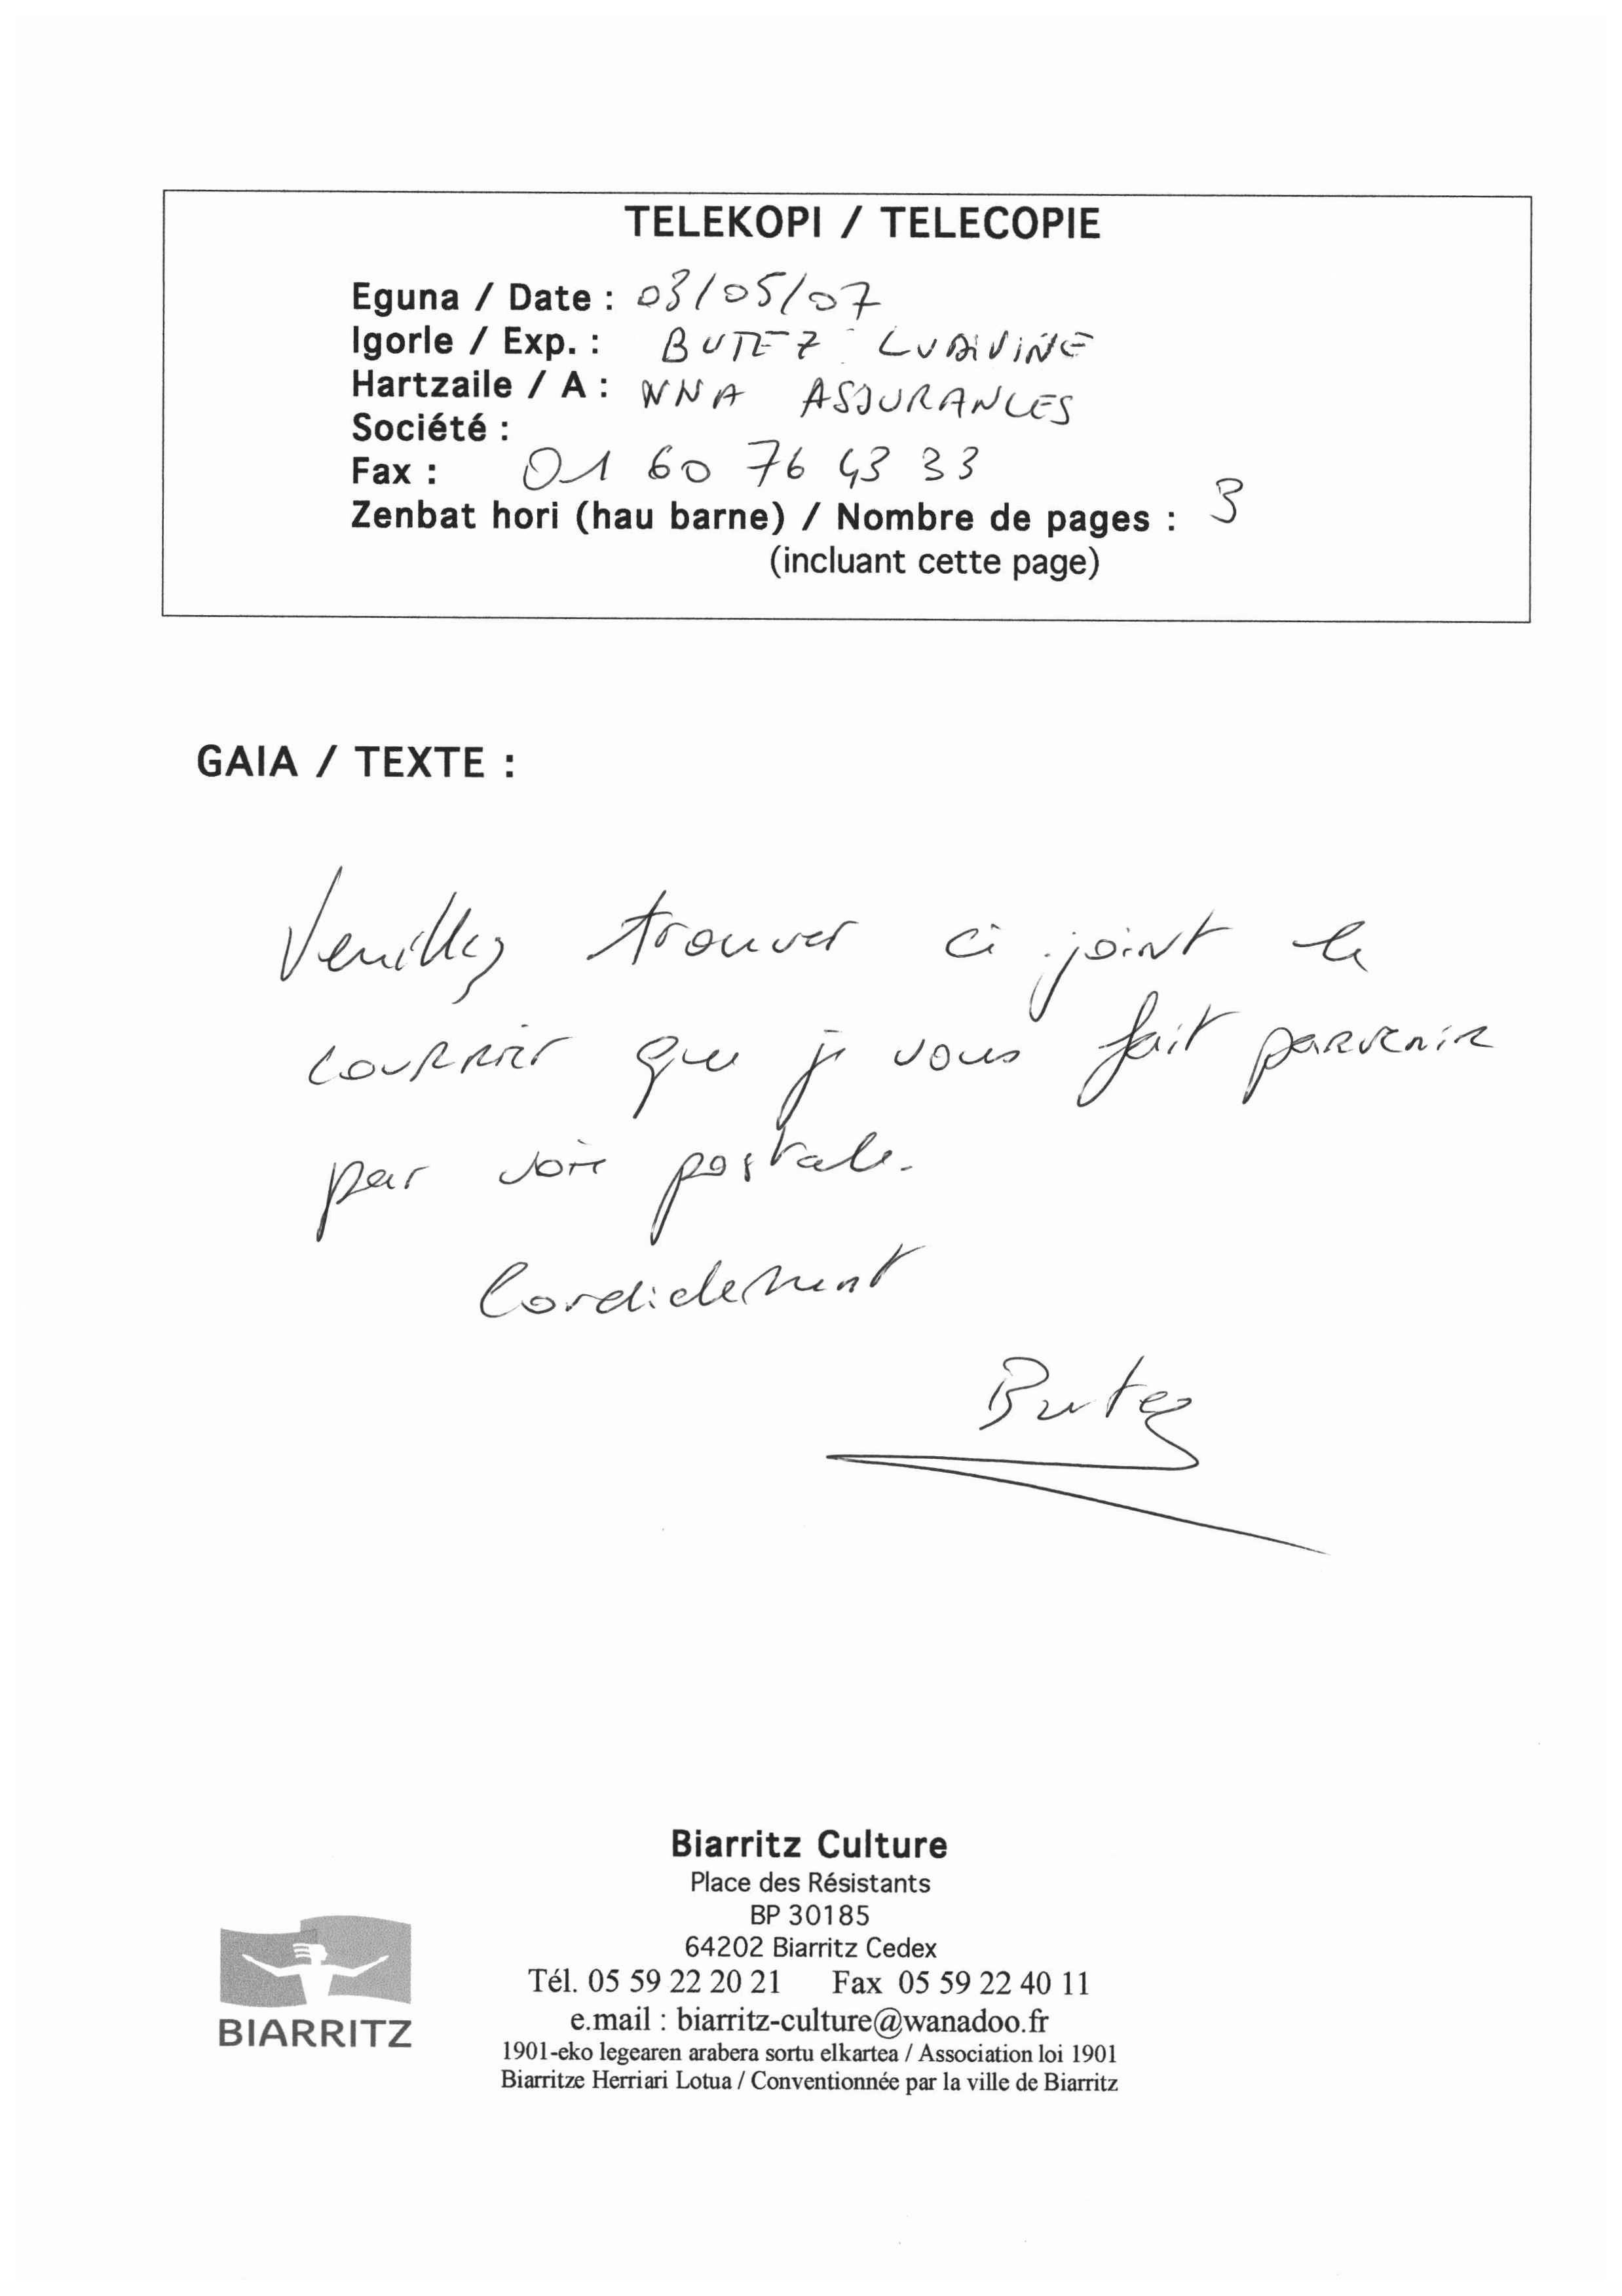 TELEKOPI / TELECOPIE
Eguna / Date : 03/05/07
Igorle / Exp. : BUTEZ LUDIVINE
Hartzaile / A : WNA ASSURANCES
Société :
Fax : 01 60 76 43 33
Zenbat hori (hau barne) / Nombre de pages : 3
(incluant cette page)
GAIA / TEXTE :
Veuillez trouver ci joint le
courrier que je vous fait parvenir
par voie postale.
Cordialement
Butez
Biarritz Culture
Place des Résistants
BP 30185
64202 Biarritz Cedex
Tél. 05 59 22 20 21 Fax 05 59 22 40 11
e.mail : biarritz-culture@wanadoo.fr
1901-eko legearen arabera sortu elkartea / Association loi 1901
Biarritze Herriari Lotua / Conventionnée par la ville de Biarritz
BIARRITZ